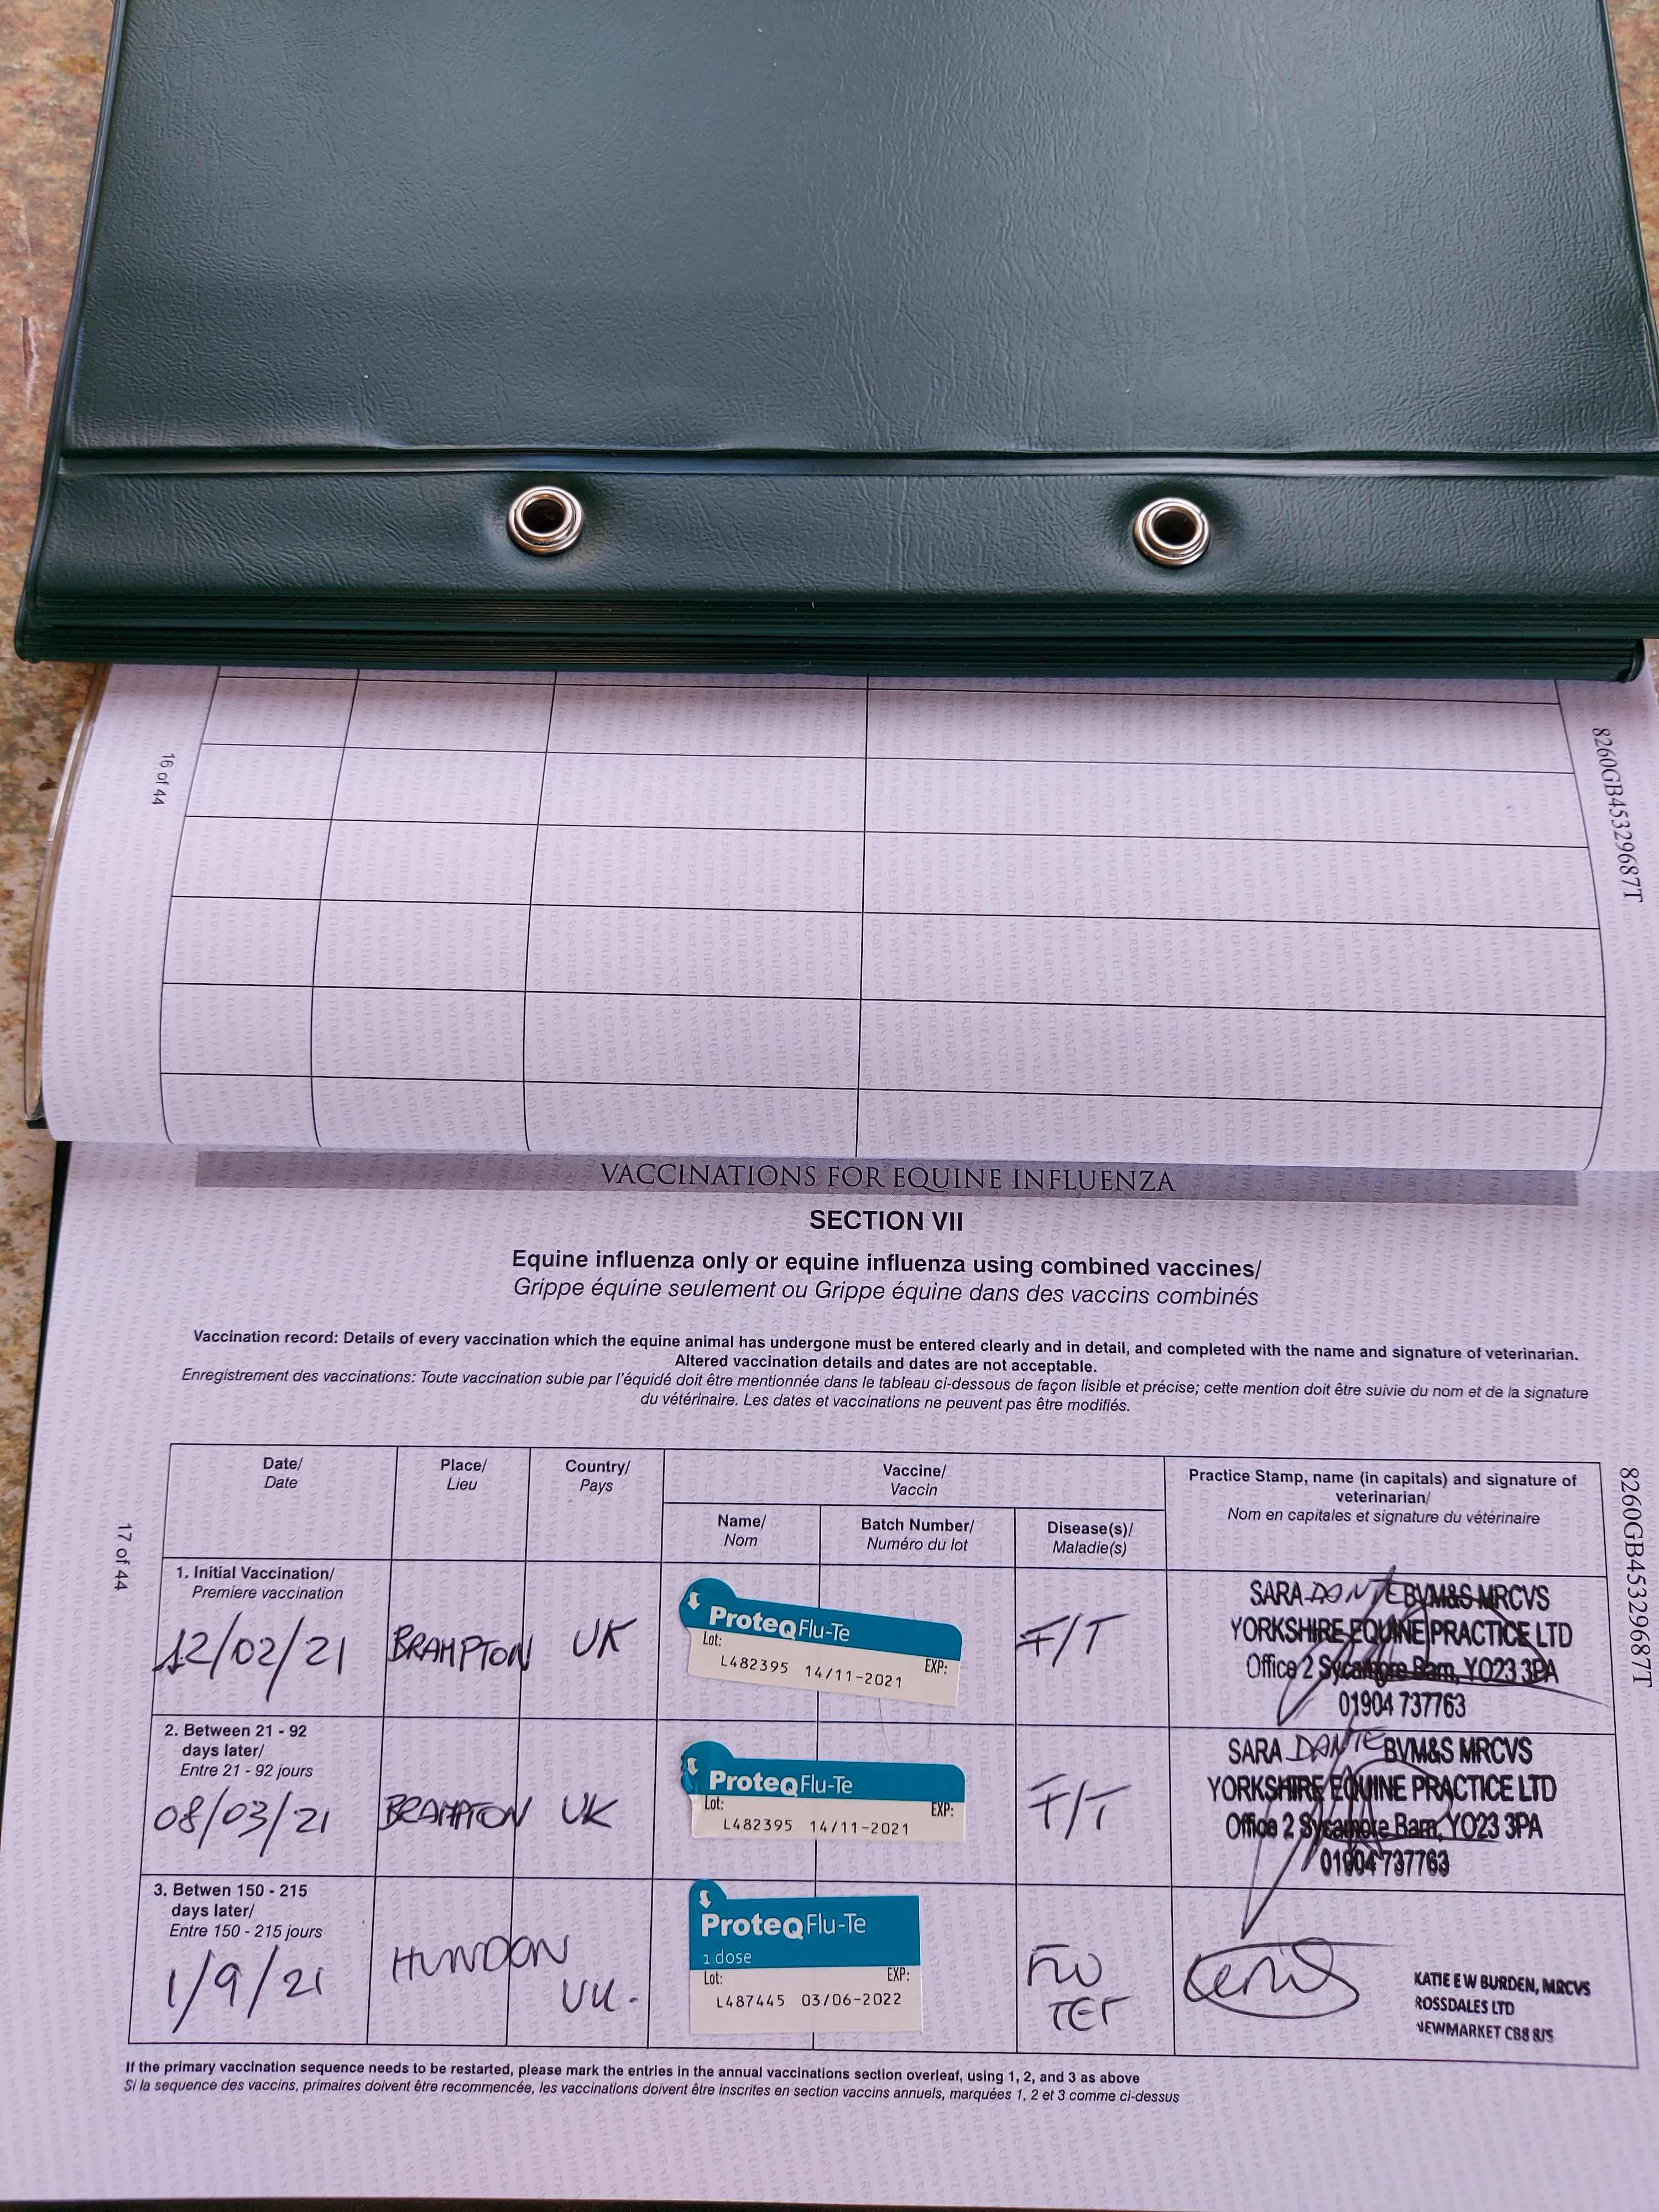 16 of 44
8260GB45329687T
VACCINATIONS FOR EQUINE INFLUENZA
SECTION VII
Equine influenza only or equine influenza using combined vaccines/
Grippe équine seulement ou Grippe équine dans des vaccins combinés
Vaccination record: Details of every vaccination which the equine animal has undergone must be entered clearly and in detail, and completed with the name and signature of veterinarian.
Altered vaccination details and dates are not acceptable.
Enregistrement des vaccinations: Toute vaccination subie par l'équidé doit être mentionnée dans le tableau ci-dessous de façon lisible et précise; cette mention doit être suivie du nom et de la signature
du vétérinaire. Les dates et vaccinations ne peuvent pas être modifiés.
17 of 44
8260GB45329687T
Date/
Date
Place/
Lieu
Country/
Pays
Vaccine/
Vaccin
Name/
Nom
Batch Number/
Numéro du lot
Disease(s)/
Maladie(s)
Practice Stamp, name (in capitals) and signature of
veterinarian/
Nom en capitales et signature du vétérinaire
1. Initial Vaccination/
Premiere vaccination
12/02/21
BRAMPTON
UK
ProteqFlu-Te
Lot:
EXP:
L482395 14/11-2021
F/T
SARA DANTE BVM&S MRCVS
YORKSHIRE EQUINE PRACTICE LTD
Office 2 Sycamore Barn, YO23 3PA
01904 737763
2. Between 21 - 92
days later/
Entre 21 - 92 jours
08/03/21
BRAMPTON
UK
ProteqFlu-Te
Lot:
EXP:
L482395 14/11-2021
F/T
SARA DANTE BVM&S MRCVS
YORKSHIRE EQUINE PRACTICE LTD
Office 2 Sycamore Barn, YO23 3PA
01904 737763
3. Betwen 150 - 215
days later/
Entre 150 - 215 jours
1/9/21
HUNDON
UK.
ProteqFlu-Te
1 dose
Lot:
EXP:
L487445 03/06-2022
FLU
TET
KATIE E W BURDEN, MRCVS
ROSSDALES LTD
NEWMARKET CB8 8JS
If the primary vaccination sequence needs to be restarted, please mark the entries in the annual vaccinations section overleaf, using 1, 2, and 3 as above
Si la sequence des vaccins, primaires doivent être recommencée, les vaccinations doivent être inscrites en section vaccins annuels, marquées 1, 2 et 3 comme ci-dessus